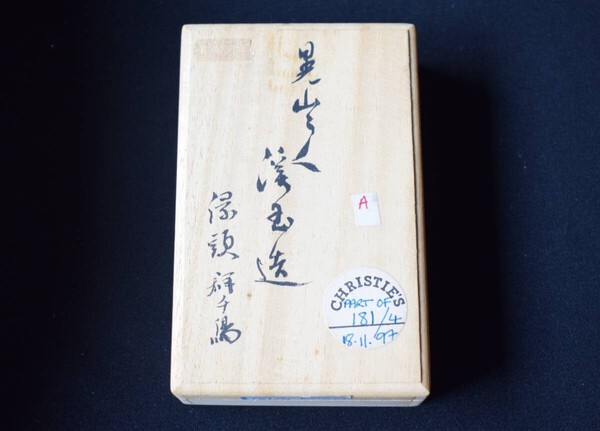 晃山々人
溪玉造
縁頭 群千鳥
A
CHRISTIE'S
PART OF
181/4
18.11.97